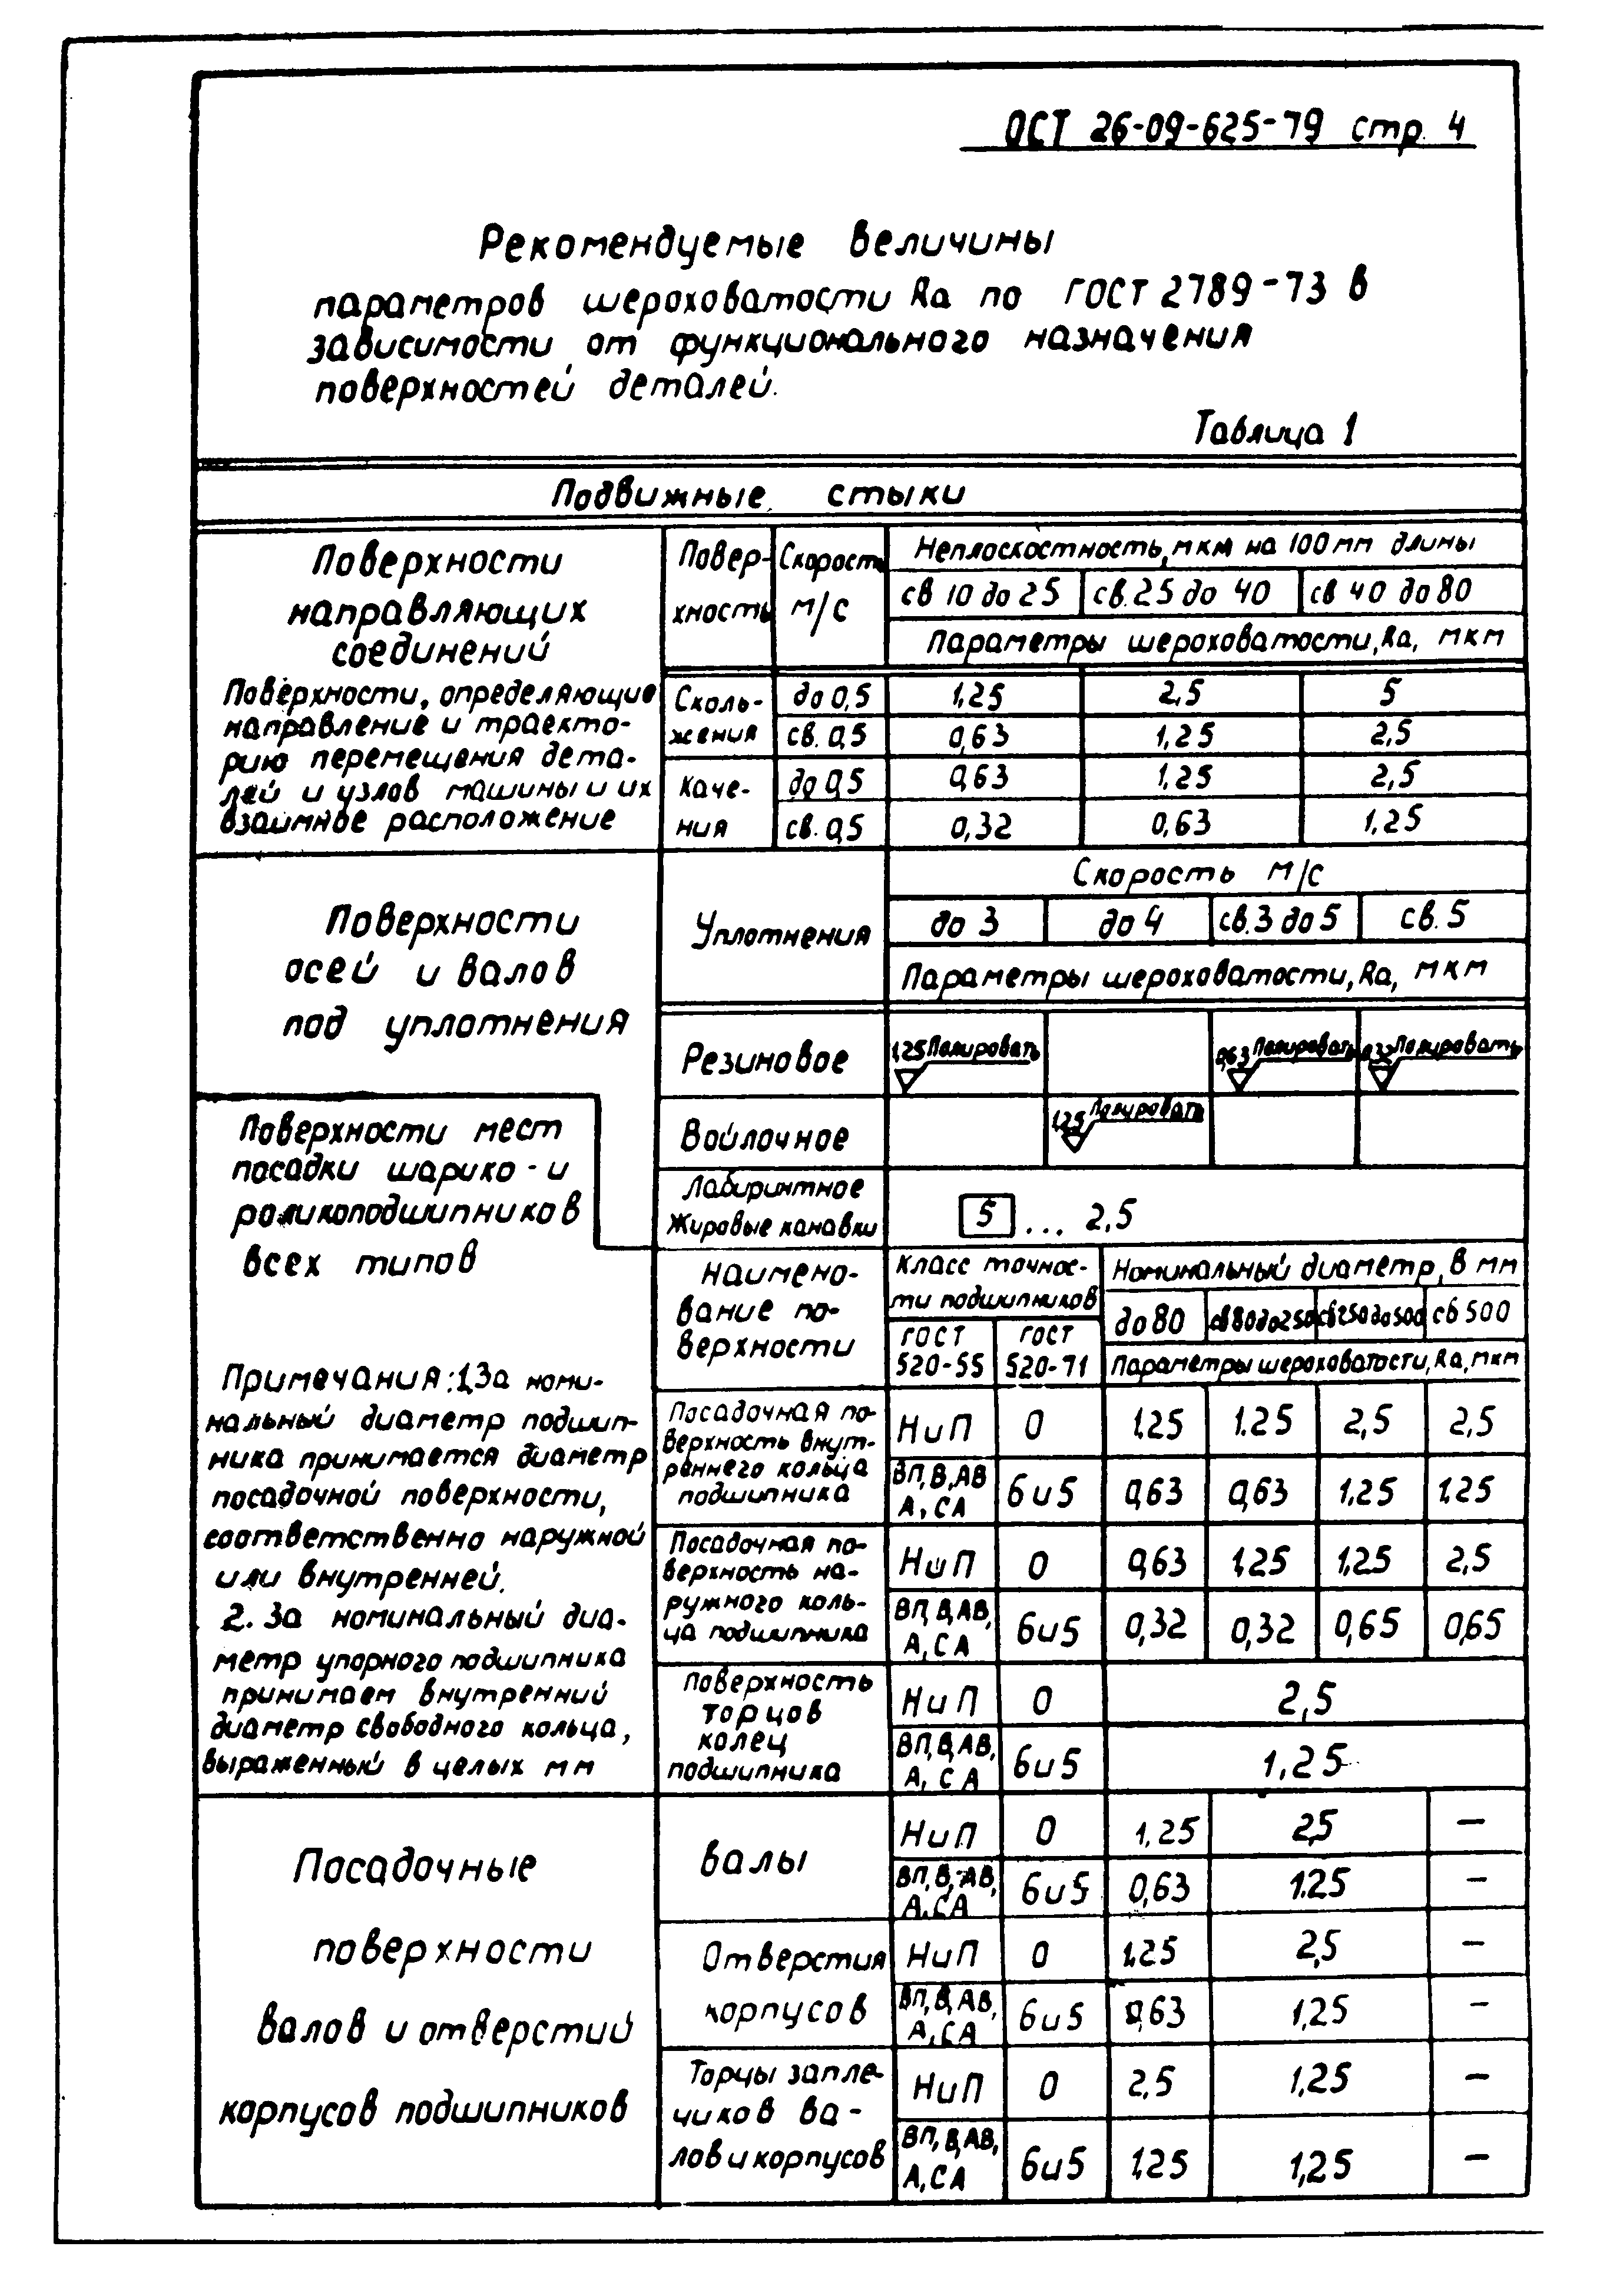 ОСТ 26-09-625-79 стр. 4
Рекомендуемые величины
параметров шероховатости Ra по ГОСТ 2789-73 в
зависимости от функционального назначения
поверхностей деталей.
Таблица 1
Подвижные стыки
Поверхности
направляющих
соединений
Поверхности, определяющие
направление и траекто-
рию перемещения дета-
лей и узлов машины и их
взаимное расположение
Повер-
хность
Скорость
м/с
Неплоскостность, мкм на 100 мм длины
св 10 до 25 св. 25 до 40 св 40 до 80
Параметры шероховатости, Ra, мкм
Сколь-
жения
до 0,5 1,25 2,5 5
св. 0,5 0,63 1,25 2,5
Каче-
ния
до 0,5 0,63 1,25 2,5
св. 0,5 0,32 0,63 1,25
Поверхности
осей и валов
под уплотнения
Уплотнения
Скорость м/с
до 3 до 4 св. 3 до 5 св. 5
Параметры шероховатости, Ra, мкм
Резиновое 1,25 Полировать 0,63 Полировать 0,32 Полировать
Войлочное 1,25 Полировать
Лабиринтное
Жировые канавки
5 ... 2,5
Поверхности мест
посадки шарико - и
роликоподшипников
всех типов
Примечания: 1. За номи-
нальный диаметр подшип-
ника принимается диаметр
посадочной поверхности,
соответственно наружной
или внутренней.
2. За номинальный диа-
метр упорного подшипника
принимаем внутренний
диаметр свободного кольца,
выраженный в целых мм
Наимено-
вание по-
верхности
Класс точнос-
ти подшипников
ГОСТ
520-55
ГОСТ
520-71
Номинальный диаметр, в мм
до 80 св 80 до 250 св 250 до 500 св 500
Параметры шероховатости, Ra, мкм
Посадочная по-
верхность внут-
реннего кольца
подшипника
Н и П 0 1.25 1.25 2,5 2,5
ВП, В, АВ
А, СА
6 и 5 0,63 0,63 1.25 1.25
Посадочная по-
верхность на-
ружного коль-
ца подшипника
Н и П 0 0,63 1,25 1,25 2,5
ВП, В, АВ,
А, СА
6 и 5 0,32 0,32 0,65 0,65
Поверхность
торцов
колец
подшипника
Н и П 0 2,5
ВП, В, АВ,
А, СА
6 и 5 1,25
Посадочные
поверхности
валов и отверстий
корпусов подшипников
валы
Н и П 0 1,25 2,5 —
ВП, В, АВ,
А, СА
6 и 5 0,63 1.25 —
Отверстия
корпусов
Н и П 0 1,25 2,5 —
ВП, В, АВ,
А, СА
6 и 5 0,63 1,25 —
Торцы запле-
чиков ва-
лов и корпусов
Н и П 0 2,5 1,25 —
ВП, В, АВ,
А, СА
6 и 5 1,25 1,25 —